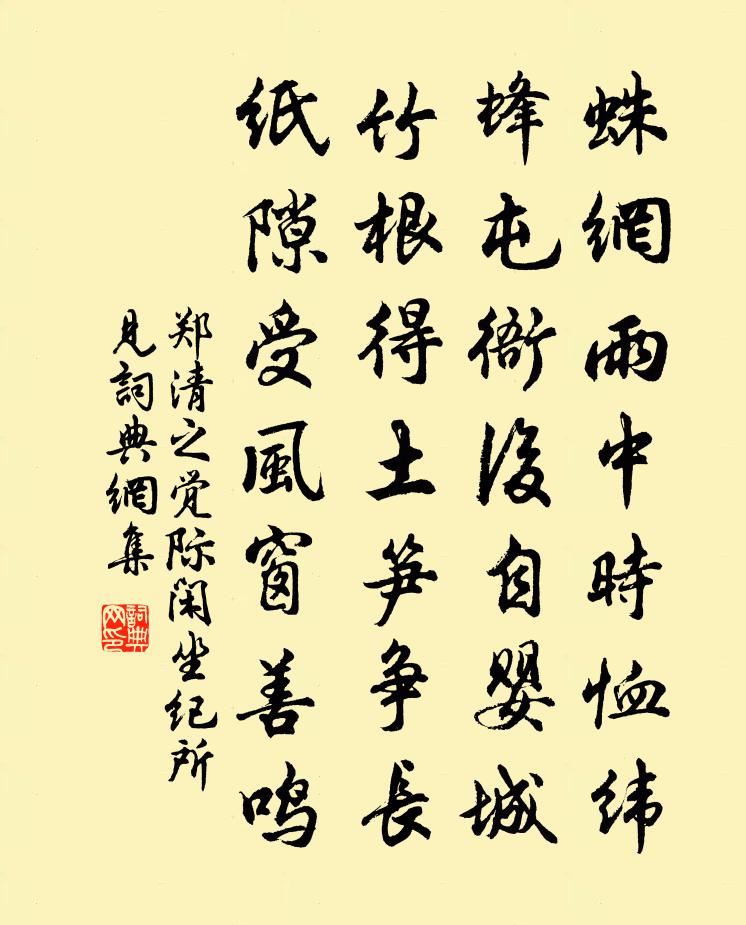 蛛網雨中時恤緯
蜂屯衙後自嬰城
竹根得土笋争長
紙隙受風窗善鸣
郑清之觉际闲坐纪所
見詞典網集
詞典网印